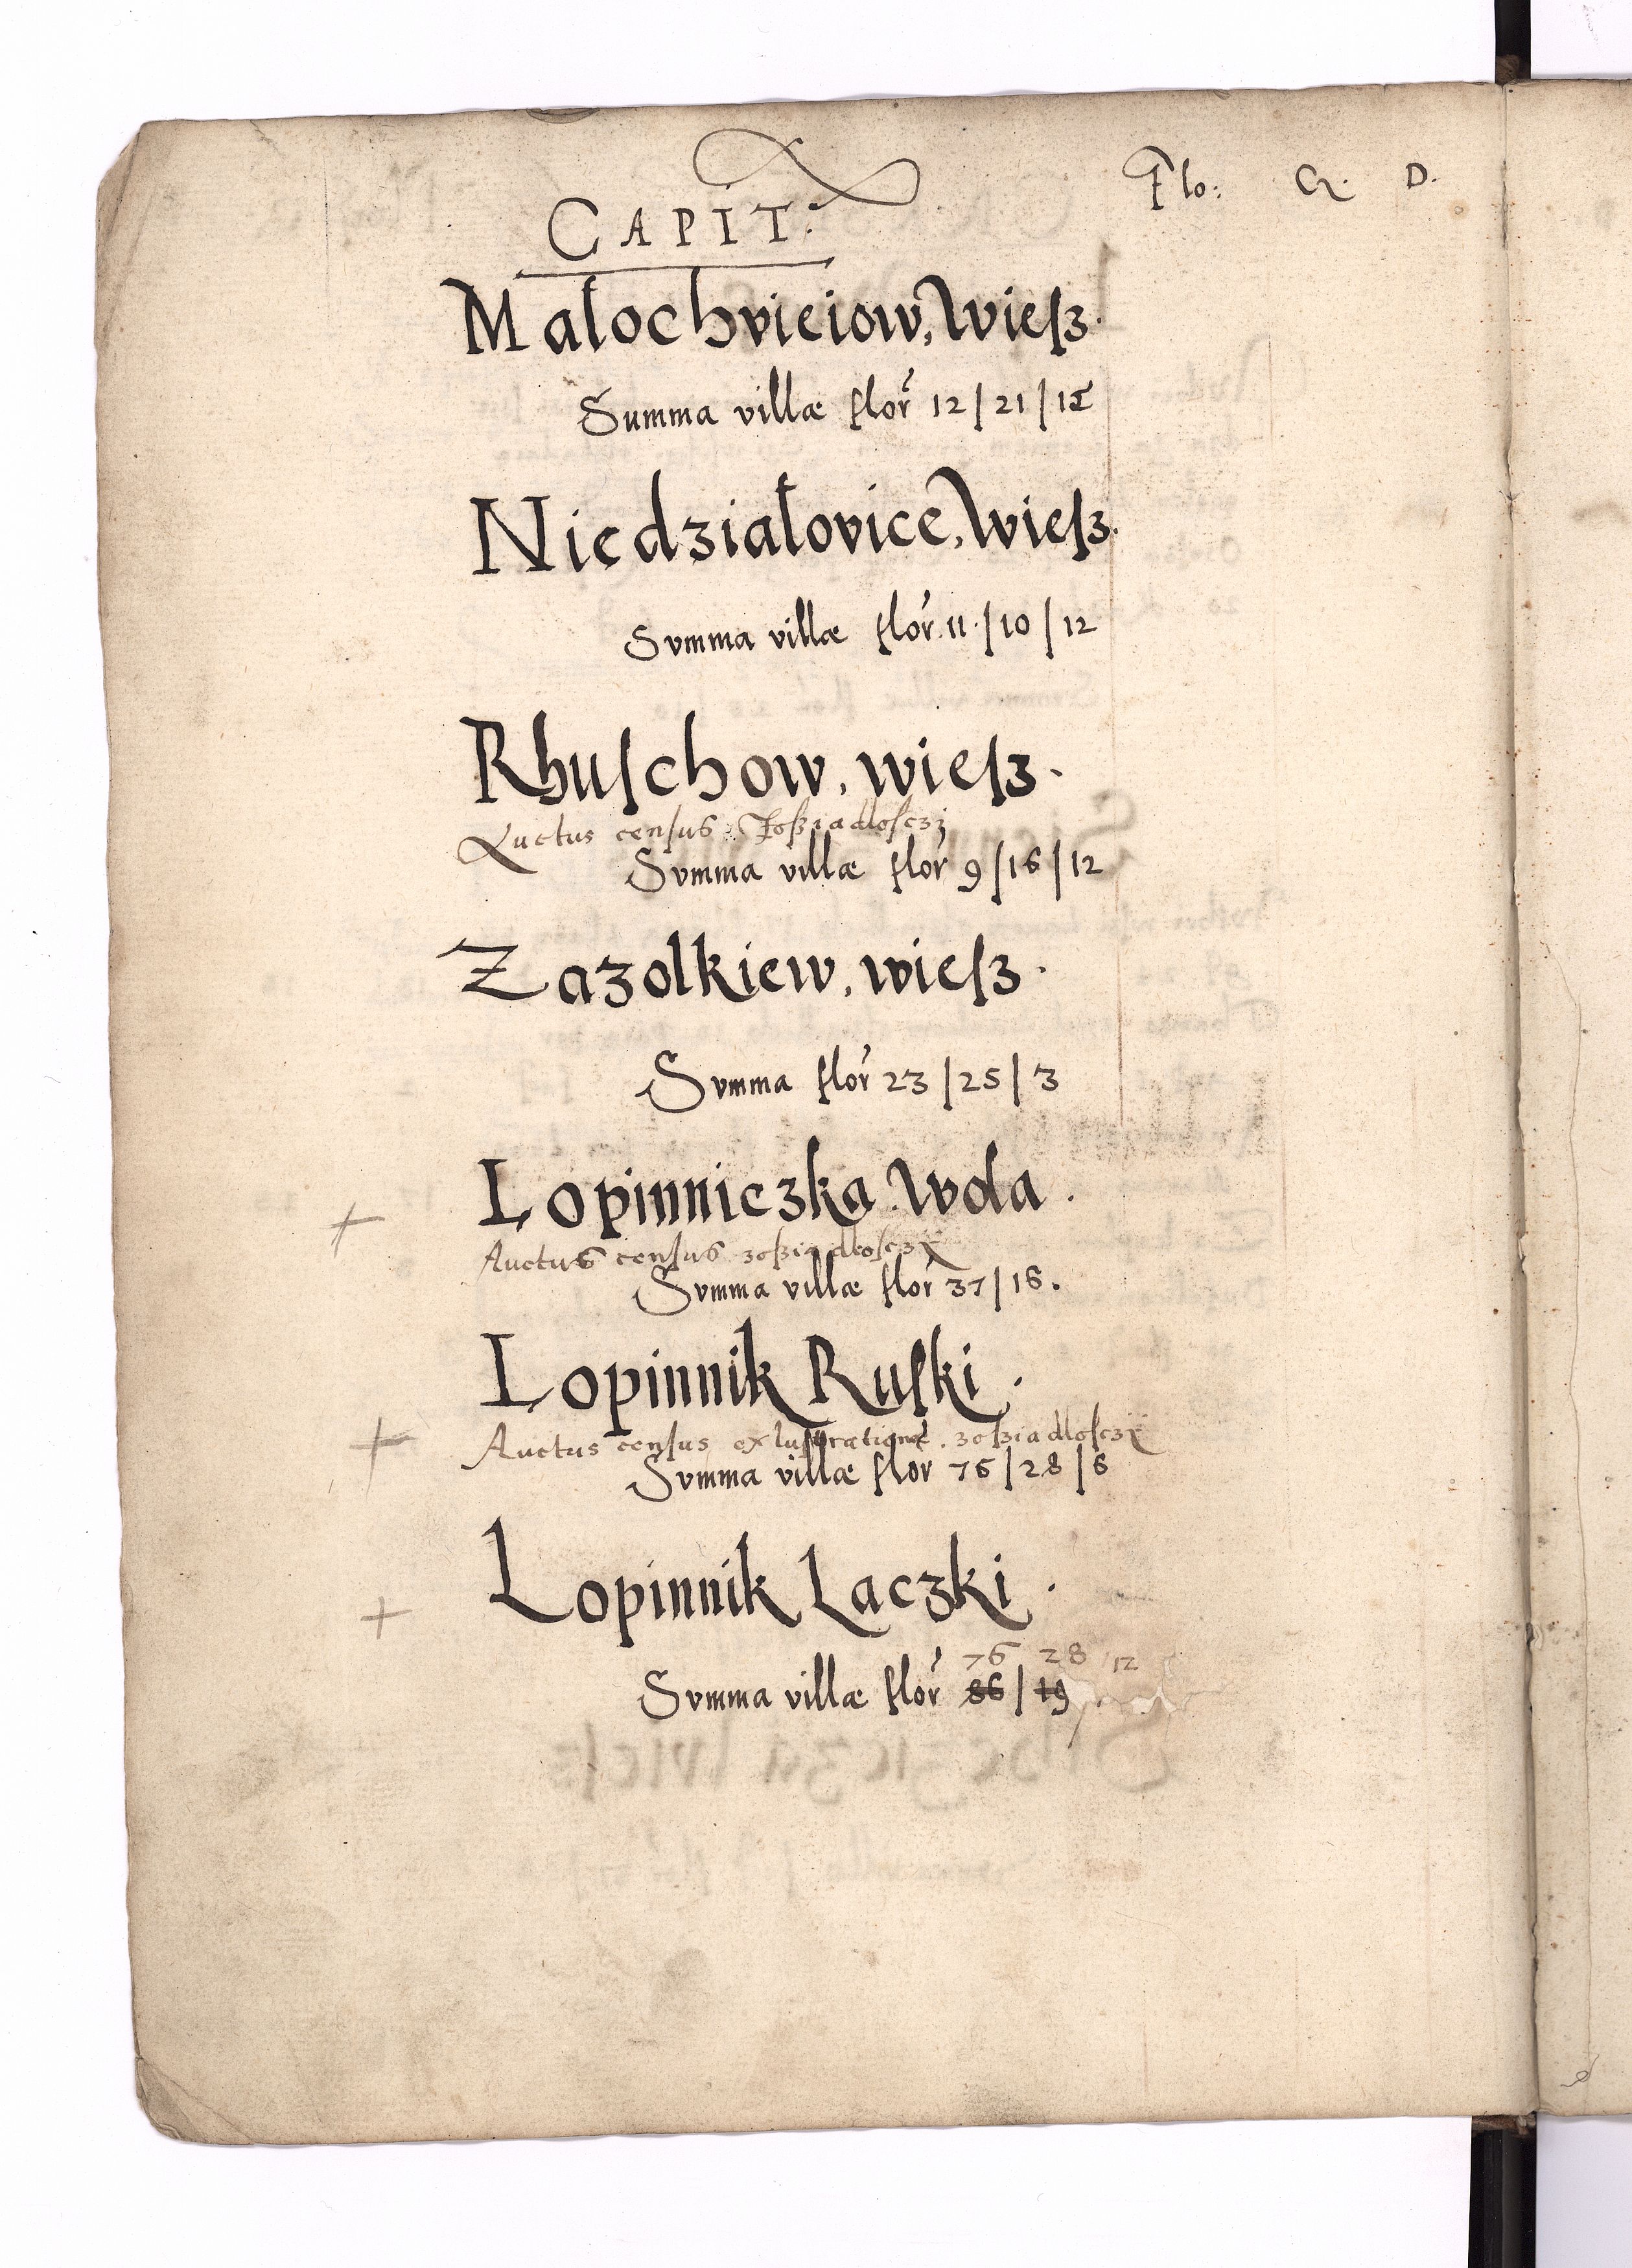 Flo: Gr. D.
CAPIT:
Małochvieiow, Wiesz.
Summa villæ flor 12/21/12
Niedziałovice, Wiesz.
Svmma villæ flor. 11./10/12
Rhuschow, wiesz.
Auctus census Zosziadlosczi
Svmma villæ flor 9/16/12
Zazolkiew, wiesz.
Svmma flor 23/25/3
+ Lopinniczka Wola.
Auctus census zosziadlosczÿ
Svmma villæ flor 37/16.
Lopinnik Ruski.
+ Auctus census ex lustratione. zosziadlosczÿ
Svmma villæ flor 76/28/6
+ Lopinnik Laczki.
76 28 12
Svmma villæ flor 86/19.